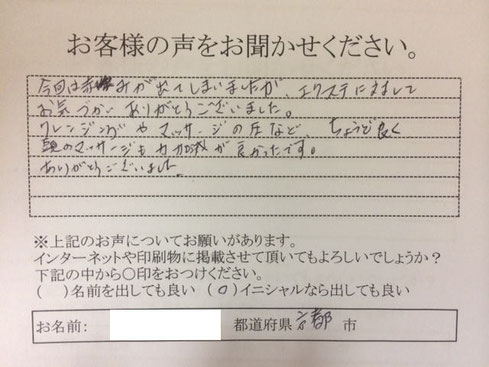 お客様の声をお聞かせください。
今回は赤みが出てしまいましたが、エクステに対しまして
お気づかいありがとうございました。
クレンジングやマッサージの圧など、ちょうど良く
頭のマッサージも力加減が良かったです。
ありがとうございました。
※上記のお声についてお願いがあります。
インターネットや印刷物に掲載させて頂いてもよろしいでしょうか？
下記の中から○印をおつけください。
（　）名前を出しても良い　（○）イニシャルなら出しても良い
お名前：　都道府県 京都 市